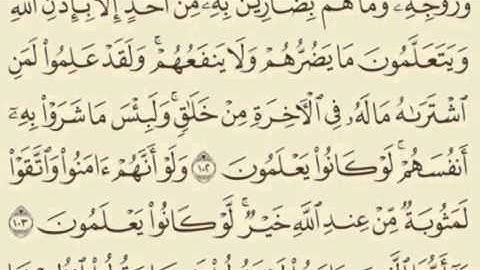 وَزَوْجِهِۦ وَمَا هُم بِضَآرِّينَ بِهِۦ مِنْ أَحَدٍ إِلَّا بِإِذْنِ ٱللَّهِ
وَيَتَعَلَّمُونَ مَا يَضُرُّهُمْ وَلَا يَنفَعُهُمْ ۚ وَلَقَدْ عَلِمُوا۟ لَمَنِ
ٱشْتَرَىٰهُ مَا لَهُۥ فِى ٱلْـَٔاخِرَةِ مِنْ خَلَـٰقٍ ۚ وَلَبِئْسَ مَا شَرَوْا۟ بِهِۦٓ
أَنفُسَهُمْ ۚ لَوْ كَانُوا۟ يَعْلَمُونَ ١٠٢ وَلَوْ أَنَّهُمْ ءَامَنُوا۟ وَٱتَّقَوْا۟
لَمَثُوبَةٌ مِّنْ عِندِ ٱللَّهِ خَيْرٌ ۖ لَّوْ كَانُوا۟ يَعْلَمُونَ ١٠٣